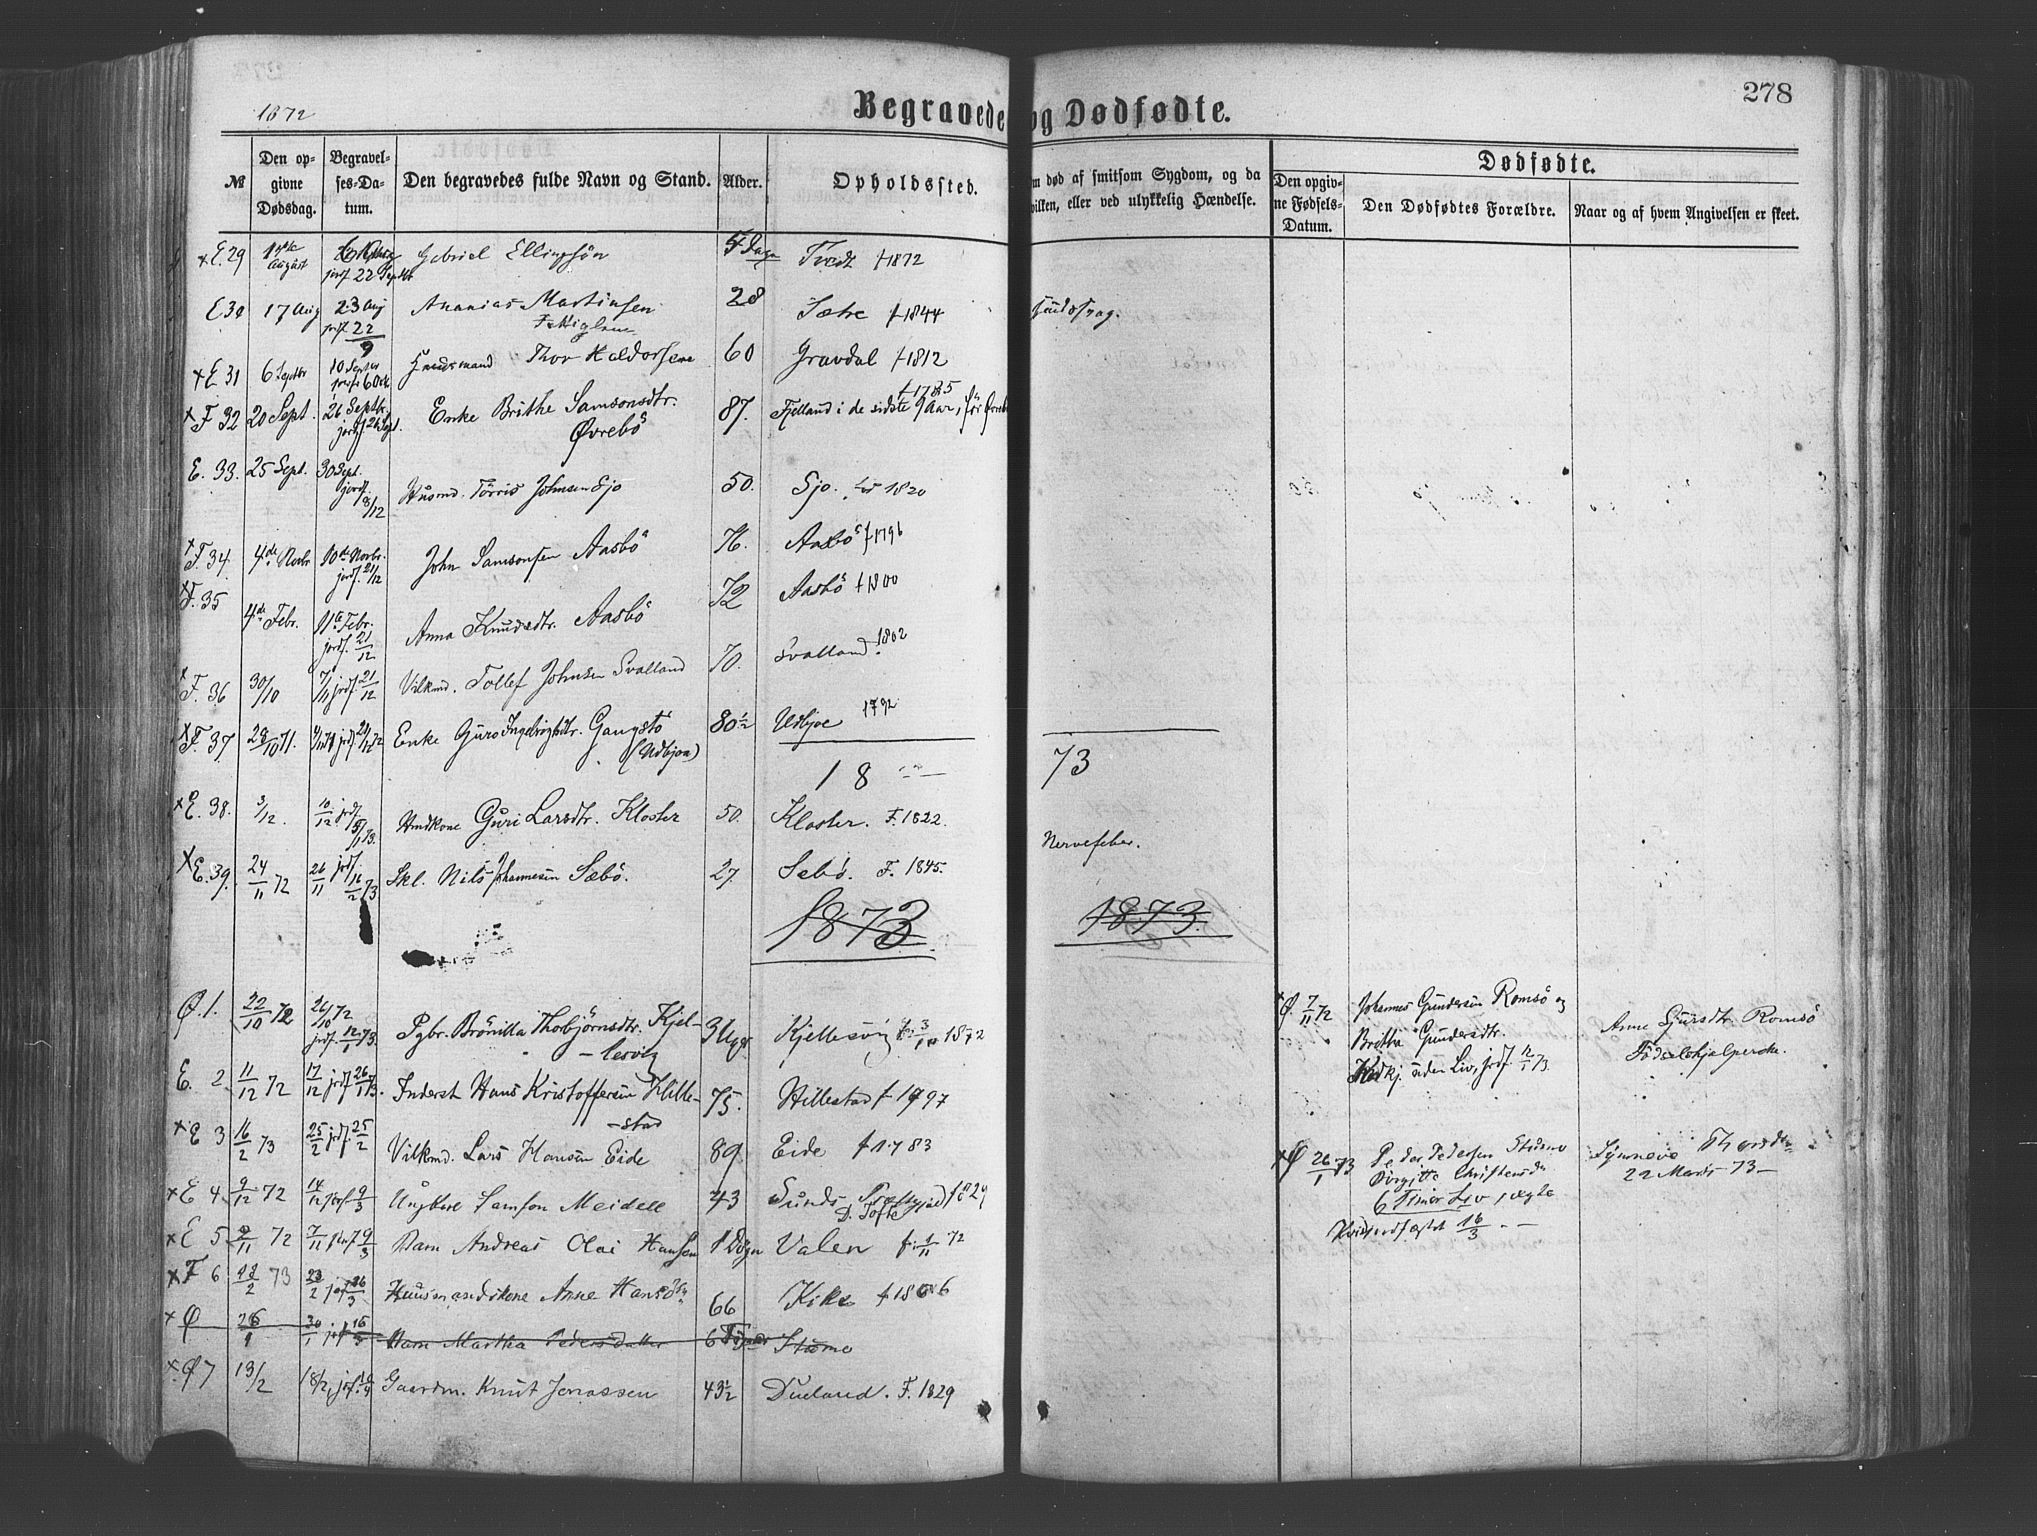 1872
Begravede og Dødfødte.
278
№
Den opgivne Dødsdag.
Begravelses-Datum.
Den begravedes fulde Navn og Stand.
Alder.
Opholdssted.
m død af smitsom Sygdom, og da
vilken, eller ved ulykkelig Hændelse.
Dødfødte.
Den opgivne Fødsels-Datum.
Den Dødfødtes Forældre.
Naar og af hvem Angivelsen er skeet.
× E. 29 August jordf. 22 Septbr Gabriel Ellingsøn Dage Tvedt f 1872
E 30 17 Aug 23 Aug Ananias Martinsen 28 Sætre f 1844
jordf. 22/9
× E 31 6 Septbr 10 Septbr Huusmand Thor Haldorsen 60 Gravdal f 1812
× F 32 20 Sept. 26 Septbr. Enke Brithe Samsonsdtr. 87. Fjelland i de sidste 9 Aar, før
f 1785
jordf 26 Sept. Øvrebö
E. 33. 25 Sept. 30 Sept. jordf. 8/12 Husmd. Torris Johnsen Sjo 50. Sjo. 1820
× F. 34 4de Novbr 10de Novbr. jordf. 21/12 John Samsonsen Aasbö 76. Aasbö f 1796
× F. 35 4de Febr. 11te Febr. jordf. 21/12 Anna Knudsdtr. Aasbö 72 Aasbö f 1800
× F. 36 30/10 7/11 jrdf. 21/12 Vilkmd. Tollef Johnsen Svalland 70. Svalland. 1802
× F. 37 28/10 71. Enke Guro Ingebrigtsdtr. Gangstö 80½ Udbjoe 1792
(Udbjoa)
18 73
× E. 38. 3/12. 10/12 jrdf. 5/1 73. Hmdkone Guri Larsdtr. Kloster 50. Kloster. F. 1822.
Nervefeber.
× E. 39. 24/11 72 26/11 jrdf 16/2 73 Skl. Nils Johannesen Sæbö. 27. Sebø. F. 1845.
1873 1873.
Ø. 1. 22/10 72 26/10 72 jrdf. 12/1 73. Pgbr. Brönilla Thobjörnsdtr. Kjel- 3 Uger Kjellesvig 1872
-lesvig
× Ø. 7/11 72 Johannes Gundersen Romsö og
Britha Gundersdtr.
Kvdkj. uden Liv, jrdf. 12/1 73.
Anne Sjursdtr. Romsö
Födselshjelperske.
E. 2 11/12 72 17/12 jrdf. 26/1 73. Inderst Hans Kristoffersen Hille- 75. Hillestad f 1797
-stad
× E 3 16/2 73 25/2 jrdf. 25/2 Vilkmd. Lars Hansen Eide 89 Eide f 1783
× Ø 26/1 73 Peder Pedersen Stuomo
Birgitte Christensdr
6 Timer Liv, ægte
16/3
Synneve
22 Marts 73 —
× E 4 9/12 72 14/12 jordf. 9/3 Ungkarl Samson Meidell 43 Sunds Præstegjeld 1829
D. Tofte
× E 5 72 7/11 9/3 Barn Andreas Olai Hansen 1 Døgn Valen f. 1/11 72
× F 6 73 23/2 26/3 Huusmandskone Anne Hansdtr 66 Kike f 1806
× Ø 26/1 30/1 Barn Martha Pedersdatter 6 Timer Stuomo
× Ø 7 13/2 18/2, jrdf. Gaardm. Knut Jonassen 43½ Dueland. F. 1829